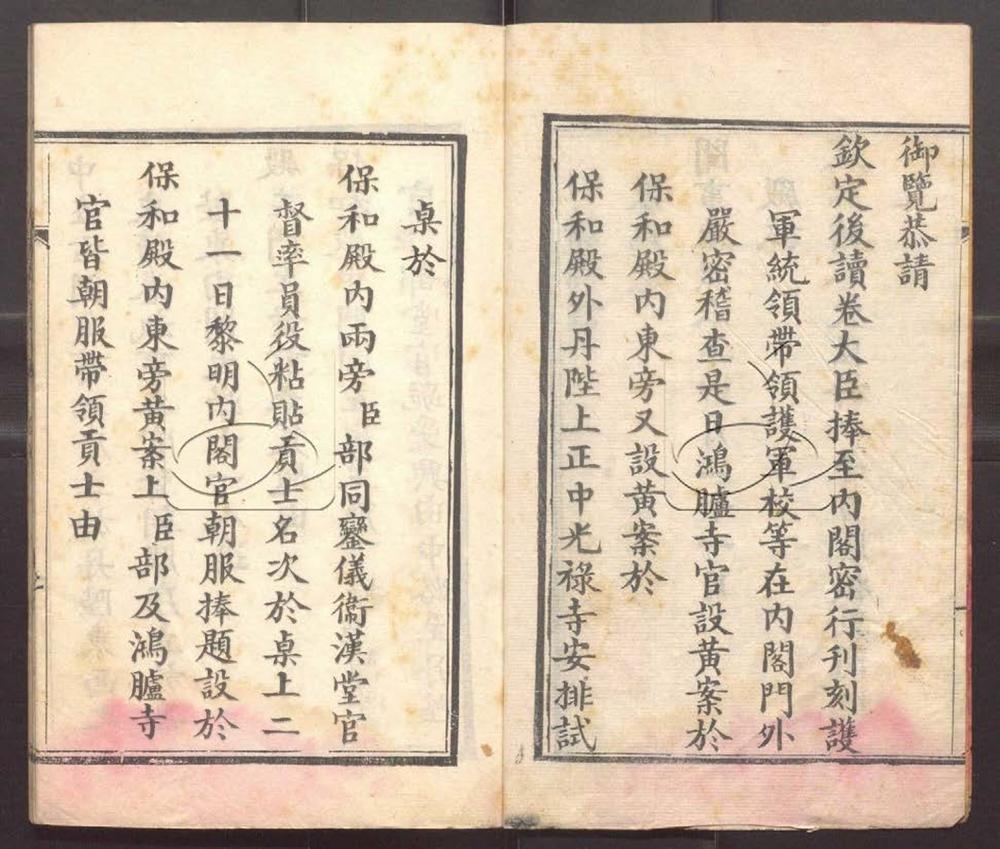 御覽恭請
欽定後讀卷大臣捧至内閣密行刊刻護
軍統領帶領護軍校等在内閣門外
嚴密稽查是日鴻臚寺官設黃案於
保和殿内東旁又設黃案於
保和殿外丹陛上正中光禄寺安排試
桌於
保和殿内兩旁臣部同鑾儀衞漢堂官
督率員役粘貼貢士名次於桌上二
十一日黎明内閣官朝服捧題設於
保和殿内東旁黃案上臣部及鴻臚寺
官皆朝服帶領貢士由